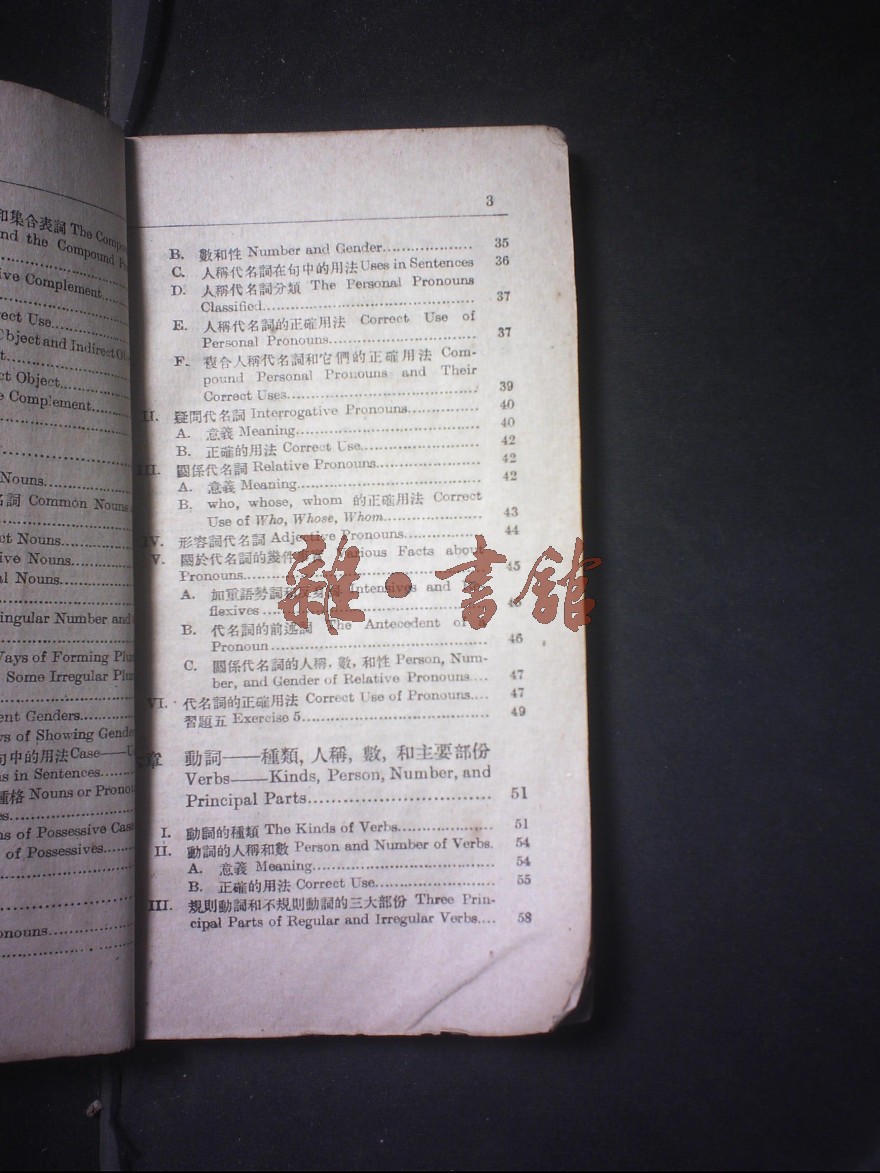 和集合表詞 The Compo
nd the Compound
ive Complement
ect Use
Object and Indirect Ob
t
ct Object
e Complement
Nouns
名詞 Common Nouns
ct Nouns
ive Nouns
al Nouns
ingular Number and
Ways of Forming Plu
Some Irregular Plu
ent Genders
ys of Showing Gende
句中的用法 Case——U
ns in Sentences
種格 Nouns or Pronou
es
ns of Possessive Case
of Possessives
onouns
3
B. 數和性 Number and Gender................... 35
C. 人稱代名詞在句中的用法 Uses in Sentences 36
D. 人稱代名詞分類 The Personal Pronouns
Classified............................................. 37
E. 人稱代名詞的正確用法 Correct Use of
Personal Pronouns............................... 37
F. 複合人稱代名詞和它們的正確用法 Com-
pound Personal Pronouns and Their
Correct Uses........................................ 39
II. 疑問代名詞 Interrogative Pronouns............... 40
A. 意義 Meaning....................................... 40
B. 正確的用法 Correct Use......................... 42
III. 關係代名詞 Relative Pronouns...................... 42
A. 意義 Meaning....................................... 42
B. who, whose, whom 的正確用法 Correct
Use of Who, Whose, Whom..................... 43
IV. 形容詞代名詞 Adjective Pronouns.................. 44
V. 關於代名詞的幾件 Various Facts about
Pronouns................................................. 45
A. 加重語勢詞和反身 Intensives and
flexives................................................ 45
B. 代名詞的前述詞 The Antecedent of a
Pronoun............................................... 46
C. 關係代名詞的人稱,數,和性 Person, Num-
ber, and Gender of Relative Pronouns.... 47
VI. 代名詞的正確用法 Correct Use of Pronouns.... 47
習題五 Exercise 5........................................ 49
章 動詞——種類,人稱,數,和主要部份
Verbs——Kinds, Person, Number, and
Principal Parts.............................. 51
I. 動詞的種類 The Kinds of Verbs.................... 51
II. 動詞的人稱和數 Person and Number of Verbs. 54
A. 意義 Meaning....................................... 54
B. 正確的用法 Correct Use......................... 55
III. 規則動詞和不規則動詞的三大部份 Three Prin-
cipal Parts of Regular and Irregular Verbs.... 58
雜·書館